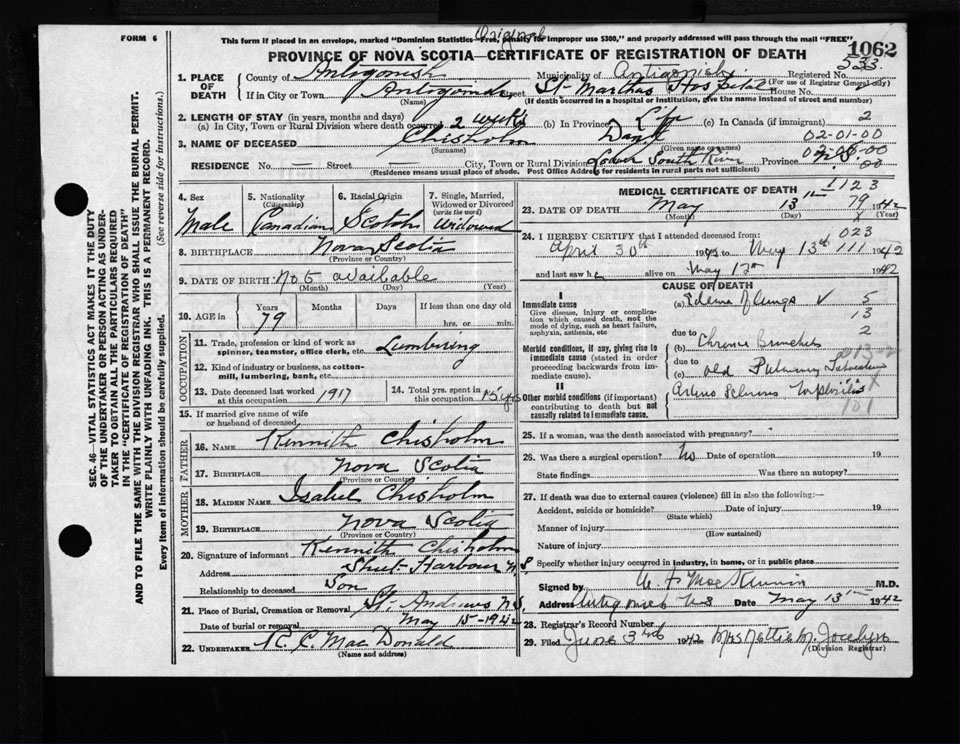 FORM 6
Original
This form if placed in an envelope, marked "Dominion Statistics—Free, penalty for improper use $300," and properly addressed will pass through the mail "FREE"
PROVINCE OF NOVA SCOTIA—CERTIFICATE OF REGISTRATION OF DEATH
1062
533
1. PLACE OF DEATH County of Antigonish Municipality of Antigonish Registered No.
(For use of Registrar General only)
If in City or Town Antigonish Street St. Marthas Hospital House No.
(Name) (If death occurred in a hospital or institution, give the name instead of street and number)
2. LENGTH OF STAY (in years, months and days)
(a) In City, Town or Rural Division where death occurred 2 weeks (b) In Province Life (c) In Canada (if immigrant) 2
02-01-00
3. NAME OF DECEASED Chisholm Dan
(Surname) (Given name or names)
RESIDENCE No. — Street — City, Town or Rural Division Lower South River Province N.S.
00
(Residence means usual place of abode. Post Office Address for residents in rural parts not sufficient)
4. Sex Male
5. Nationality (Citizenship) Canadian
6. Racial Origin Scotch
7. Single, Married, Widowed or Divorced (write the word) Widowed
8. BIRTHPLACE Nova Scotia
(Province or Country)
9. DATE OF BIRTH Not available
(Month) (Day) (Year)
10. AGE Years 79 Months Days If less than one day old hrs. or min.
OCCUPATION
11. Trade, profession or kind of work as spinner, teamster, office clerk, etc. Lumbering
12. Kind of industry or business, as cotton-mill, lumbering, bank, etc.
13. Date deceased last worked at this occupation 1917
14. Total yrs. spent in this occupation 15 yrs
15. If married give name of wife or husband of deceased
FATHER
16. NAME Kennith Chisholm
17. BIRTHPLACE Nova Scotia
(Province or Country)
MOTHER
18. MAIDEN NAME Isabel Chisholm
19. BIRTHPLACE Nova Scotia
(Province or Country)
20. Signature of informant Kennith Chisholm
Address Sheet Harbour N.S.
Relationship to deceased Son
21. Place of Burial, Cremation or Removal St. Andrews N.S.
Date of burial or removal May 15-1942
22. UNDERTAKER R. C. MacDonald
(Name and address)
MEDICAL CERTIFICATE OF DEATH
1123
23. DATE OF DEATH May 13 1942
79
(Month) (Day)
023
24. I HEREBY CERTIFY that I attended deceased from:
April 30th 1942 to May 13th 1942
111
and last saw h alive on May 12 1942
CAUSE OF DEATH
I
Immediate cause
Give disease, injury or complication which caused death, not the mode of dying, such as heart failure, asphyxia, asthenia, etc
(a) Edema of Lungs 5
13
due to 2
Morbid conditions, if any, giving rise to immediate cause (stated in order proceeding backwards from immediate cause).
(b) Chronic Bronchitis
due to
(c) Old Pulmonary
II
Other morbid conditions (if important) contributing to death but not causally related to immediate cause.
101
25. If a woman, was the death associated with pregnancy?
26. Was there a surgical operation? No Date of operation 19
State findings Was there an autopsy?
27. If death was due to external causes (violence) fill in also the following:—
Accident, suicide or homicide? Date of injury 19
(State which)
Manner of injury
(How sustained)
Nature of injury
Specify whether injury occurred in industry, in home, or in public place
Signed by M.D.
Address Antigonish N S Date May 13th 1942
28. Registrar's Record Number
29. Filed June 3rd 1942 Mrs Nettie M. Jocelyn
(Division Registrar)
SEC. 46—VITAL STATISTICS ACT MAKES IT THE DUTY
OF THE UNDERTAKER OR PERSON ACTING AS UNDER-
TAKER TO OBTAIN ALL THE PARTICULARS REQUIRED
IN THE "CERTIFICATE OF REGISTRATION OF DEATH"
AND TO FILE THE SAME WITH THE DIVISION REGISTRAR WHO SHALL ISSUE THE BURIAL PERMIT.
WRITE PLAINLY WITH UNFADING INK. THIS IS A PERMANENT RECORD.
Every item of information should be carefully supplied. (See reverse side for instructions.)